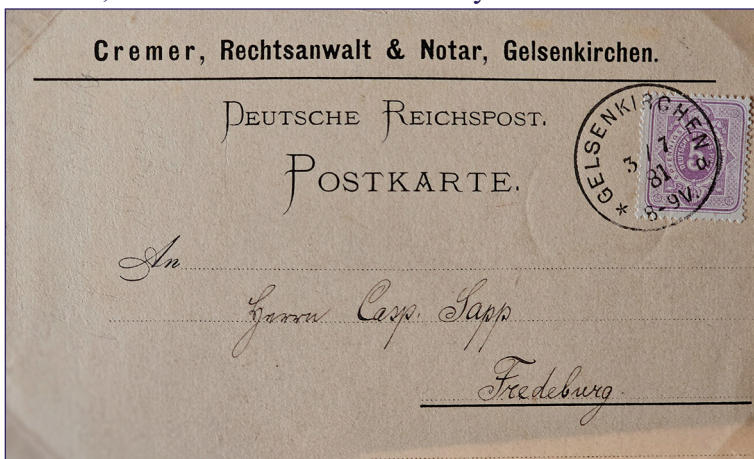 Cremer, Rechtsanwalt & Notar, Gelsenkirchen.
DEUTSCHE REICHSPOST.
POSTKARTE.
* GELSENKIRCHEN
3 1 7
81 a
8-9V.
An
Herrn Casp. Sapp
Fredeburg.